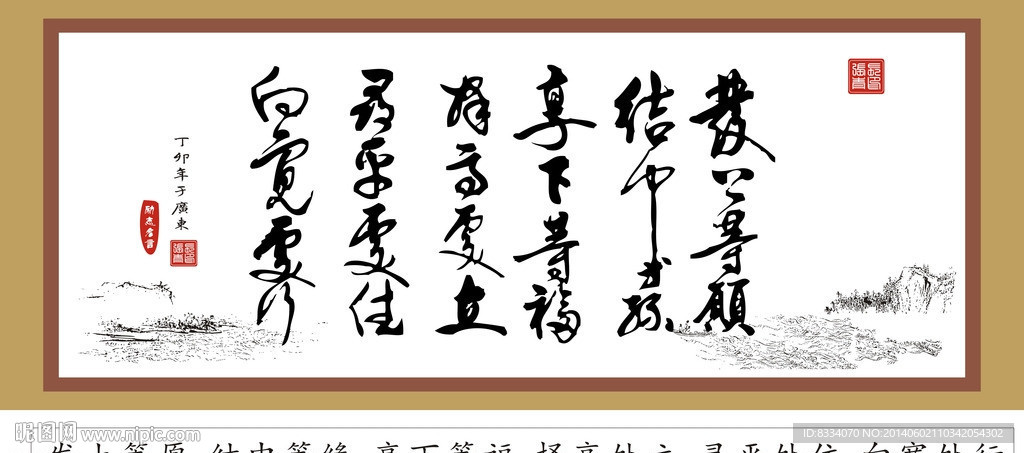 發上等願
結中等緣
享下等福
擇高處立
尋平處住
向寬處行
丁卯年于廣東
励志名言
发上等愿 结中等缘 享下等福 择高处立 寻平处住 向宽处行
昵图网 www.nipic.com
ID:8334070 NO:20140602110342054302